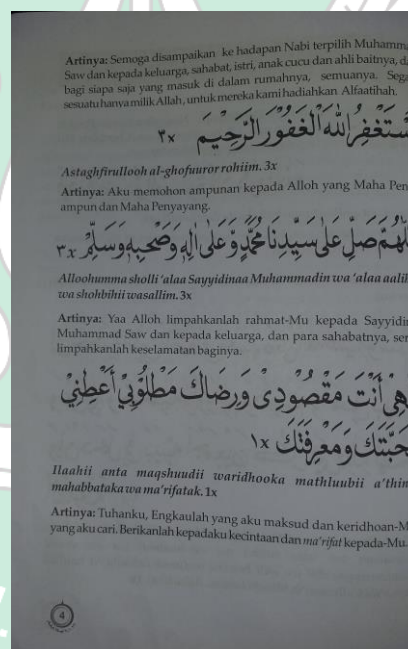 Artinya: Semoga disampaikan ke hadapan Nabi terpilih Muhamm
Saw dan kepada keluarga, sahabat, istri, anak cucu dan ahli baitnya, d
bagi siapa saja yang masuk di dalam rumahnya, semuanya. Sega
sesuatu hanya milik Allah, untuk mereka kami hadiahkan Alfaatihah.
سْتَغْفِرُ اللّٰهَ الْغَفُوْرَ الرَّحِيْمَ ٣x
Astaghfirullooh al-ghofuuror rohiim. 3x
Artinya: Aku memohon ampunan kepada Alloh yang Maha Pen
ampun dan Maha Penyayang.
لّٰهُمَّ صَلِّ عَلٰى سَيِّدِنَا مُحَمَّدٍ وَّعَلٰى اٰلِهٖ وَصَحْبِهٖ وَسَلِّمْ ٣x
Alloohumma sholli 'alaa Sayyidinaa Muhammadin wa 'alaa aalih
wa shohbihii wasallim. 3x
Artinya: Yaa Alloh limpahkanlah rahmat-Mu kepada Sayyidin
Muhammad Saw dan kepada keluarga, dan para sahabatnya, ser
limpahkanlah keselamatan baginya.
هِيْ أَنْتَ مَقْصُوْدِىْ وَرِضَاكَ مَطْلُوْبِيْ أَعْطِنِيْ
حَبَّتَكَ وَمَعْرِفَتَكَ ١x
Ilaahii anta maqshuudii waridhooka mathluubii a'thin
mahabbataka wa ma'rifatak. 1x
Artinya: Tuhanku, Engkaulah yang aku maksud dan keridhoan-M
yang aku cari. Berikanlah kepadaku kecintaan dan ma'rifat kepada-Mu.
4